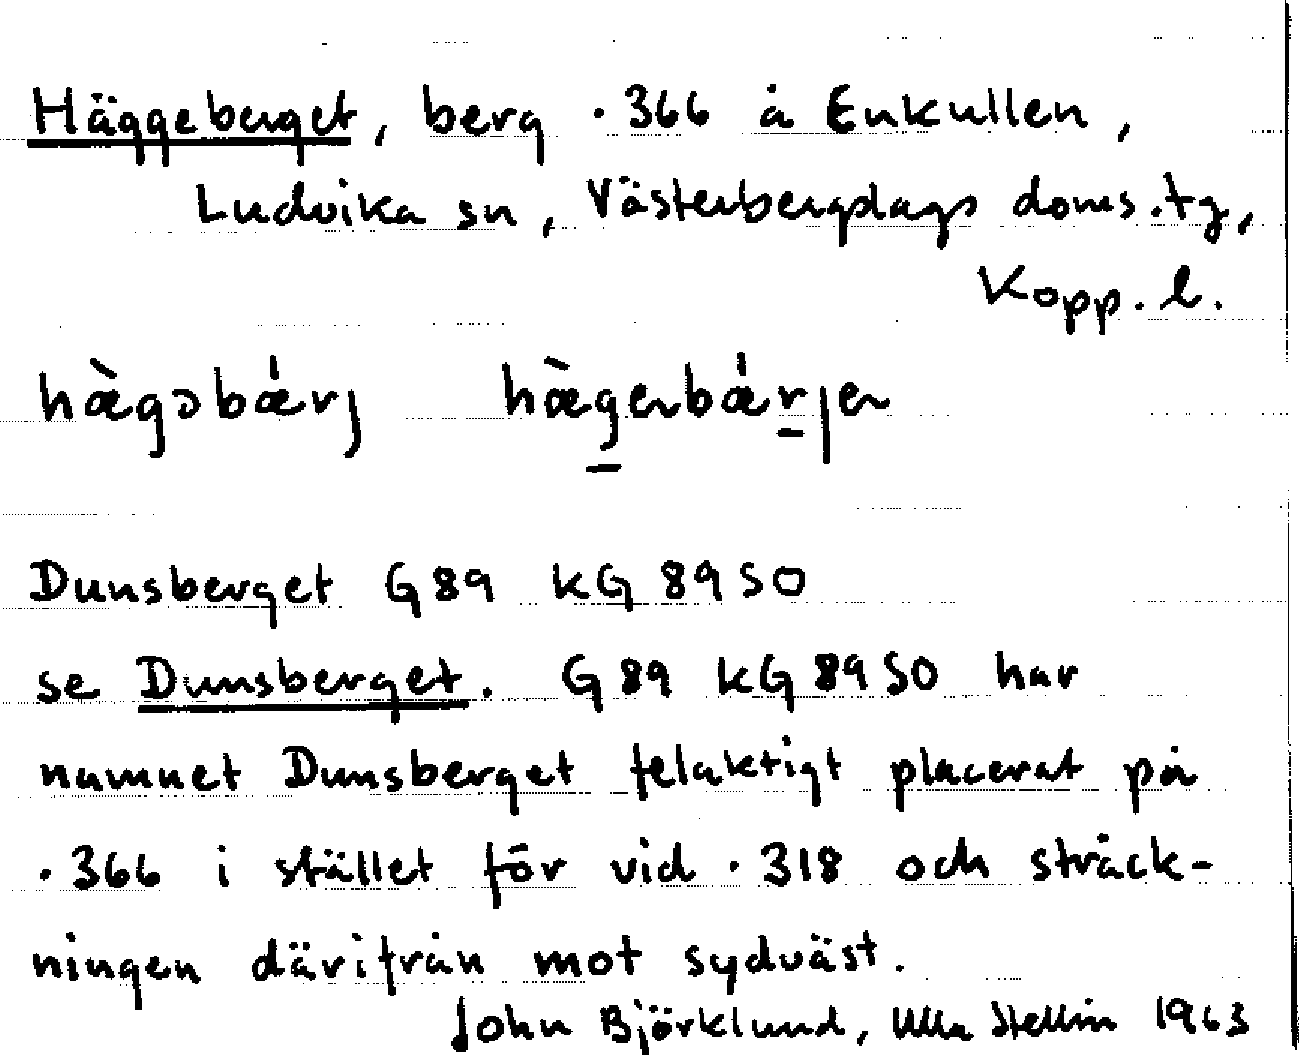 Häggeberget, berg .366 å Enkullen,
Ludvika sn, Västerbergslags doms.tg,
Kopp. l.
hæ̀gəbǽrj hæ̀gerbǽrjer
Dunsberget G89 kG 89 SO
se Dunsberget. G89 kG 89 SO har
namnet Dunsberget felaktigt placerat på
.366 i stället för vid .318 och sträck-
ningen därifrån mot sydväst.
John Björklund, Ulla Stellin 1963